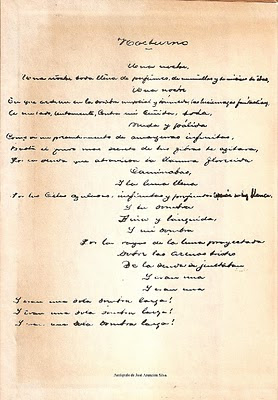 Nocturno
Una noche,
Una noche toda llena de perfumes, de murmullos y de músicas de alas,
Una noche
En que ardían en la sombra nupcial y húmeda las luciérnagas fantásticas,
A mi lado, lentamente, contra mí ceñida, toda,
Muda y pálida
Como si un presentimiento de amarguras infinitas,
Hasta el fondo más secreto de tus fibras te agitara,
Por la senda que atraviesa la llanura florecida
Caminabas,
Y la luna llena
Por los cielos azulosos, infinitos y profundos esparcía su luz blanca,
Y tu sombra
Fina y lánguida,
Y mi sombra
Por los rayos de la luna proyectada
Sobre las arenas
De la senda se juntaban
Y eran una
Y eran una
Y eran una sola sombra larga!
Y eran una sola sombra larga!
Y eran una sola sombra larga!
Autógrafo de José Asunción Silva